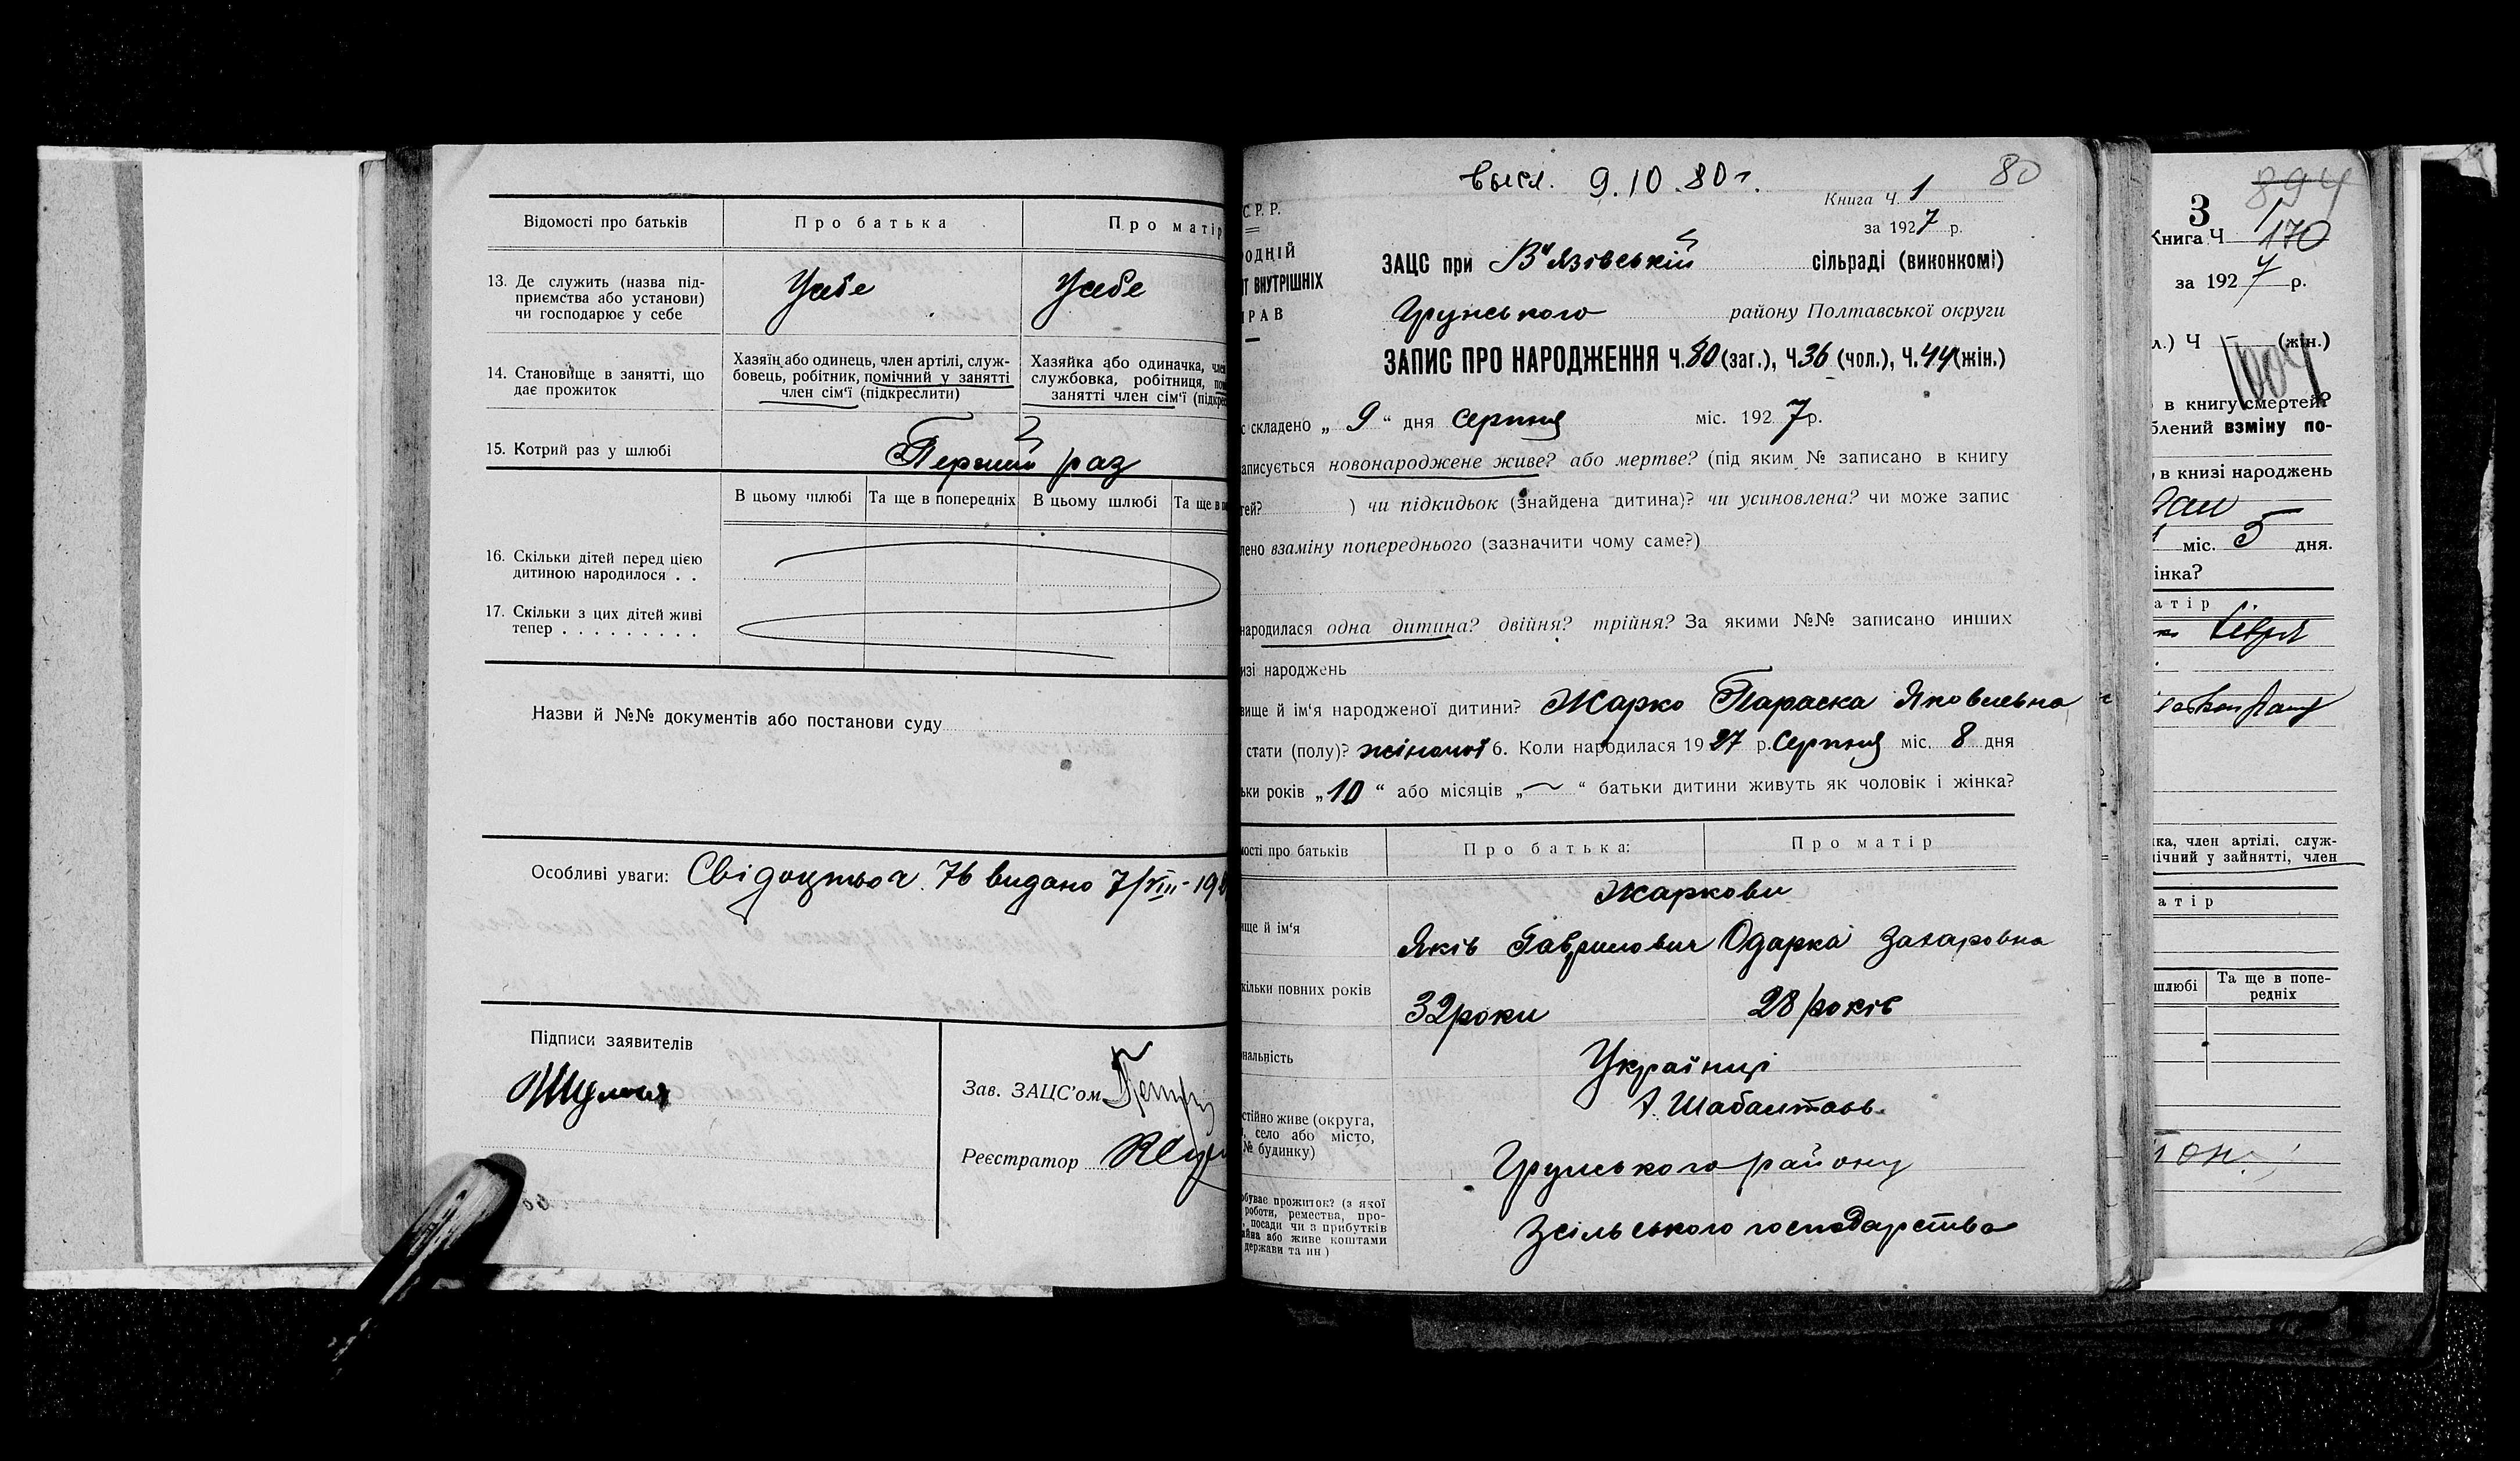 Відомості про батьків
Про батька
Про матір
13. Де служить (назва під-
приємства або установи)
чи господарює у себе
У себе
У себе
14. Становище в занятті, що
дає прожиток
Хазяїн або одинець, член артілі, служ-
бовець, робітник, помічний у занятті
член сім'ї (підкреслити)
Хазяйка або одиначка, член
службовка, робітниця,
занятті член сім'ї
15. Котрий раз у шлюбі
Перший раз
В цьому шлюбі
Та ще в попередніх
В цьому шлюбі
Та ще в
16. Скільки дітей перед цією
дитиною народилося . .
17. Скільки з цих дітей живі
тепер . . . . . . . . .
Назви й №№ документів або постанови суду
Особливі уваги: Свідоцтво ч. 76 видано 7/VIII-19
Підписи заявителів
Зав. ЗАЦС'ом
Реєстратор
высл. 9.10.80 г.
80
Книга Ч. 1
за 1927 р.
С.Р.Р.
ОДНІЙ
Т ВНУТРІШНІХ
РАВ
ЗАЦС при В'язівській сільраді (виконкомі)
Грунського району Полтавської округи
ЗАПИС ПРО НАРОДЖЕННЯ Ч. 80 (заг.), Ч 36 (чол.), Ч. 44 (жін.)
складено „ 9 “ дня серпня міс. 1927 р.
аписується новонароджене живе? або мертве? (під яким № записано в книгу
тей? ) чи підкидьок (знайдена дитина)? чи усиновлена? чи може запис
лено взаміну попереднього (зазначити чому саме?)
народилася одна дитина? двійня? трійня? За якими №№ записано инших
изі народжень
вище й ім'я народженої дитини? Жарко Параска Яковлевна
стати (полу)? жіночої 6. Коли народилася 1927 р. серпня міс. 8 дня
ьки років „10“ або місяців „—“ батьки дитини живуть як чоловік і жінка?
мості про батьків
Про батька:
Про матір
Жаркови
ище й ім'я
Яків Гаврилович
Одарка Захаровна
кільки повних років
32 роки
28 років
нальність
Українці
стійно живе (округа,
село або місто,
№ будинку)
Грунського району
обуває прожиток? (з якої
роботи, ремества, про-
посади чи з прибутків
айна або живе коштами
держави та ин)
З сільського господарства
3
894
Книга Ч 1
170
за 1927 р.
л.) Ч (жін.)
1004
в книгу смертей?
блений взміну по-
в книзі народжень
міс. 5 дня.
інка?
атір
ка, член артілі, служ-
ічний у зайнятті, член
атір
шлюбі
Та ще в попе-
редніх